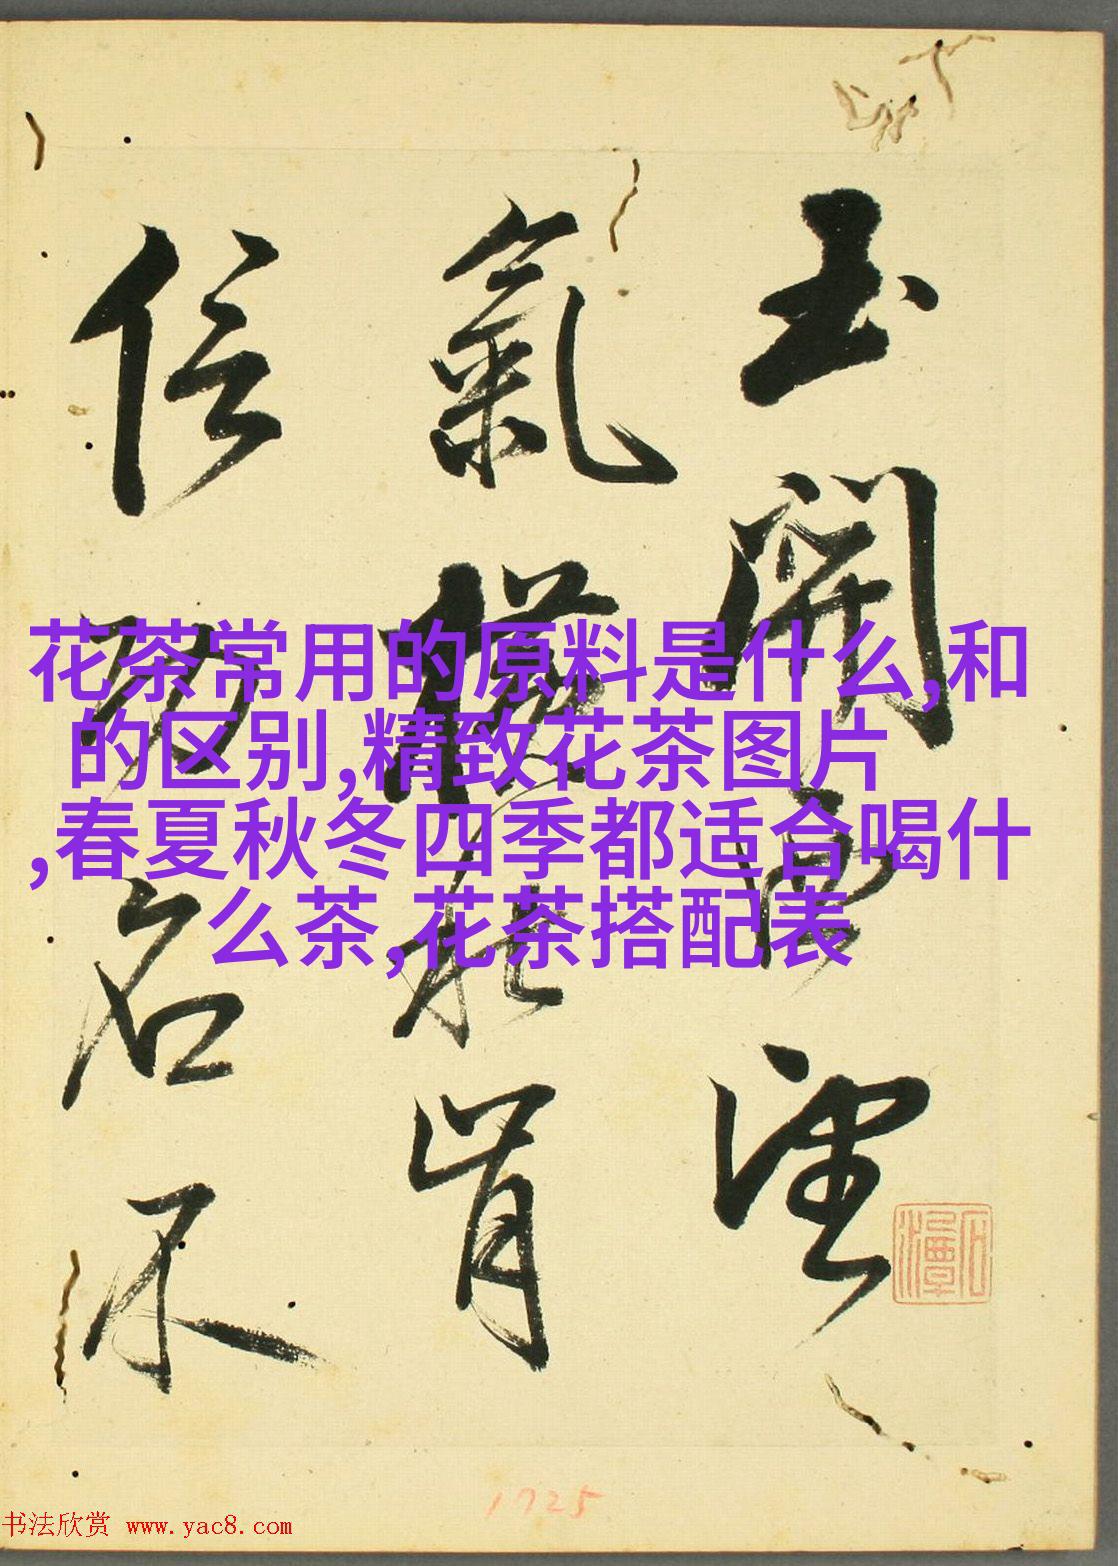 玉開雲望
氣橫秋肯
信為名不
花茶常用的原料是什么,和
的区别,精致花茶图片
,春夏秋冬四季都适合喝什
么茶,花茶搭配表
石潭
1725
书法欣赏 www.yac8.com